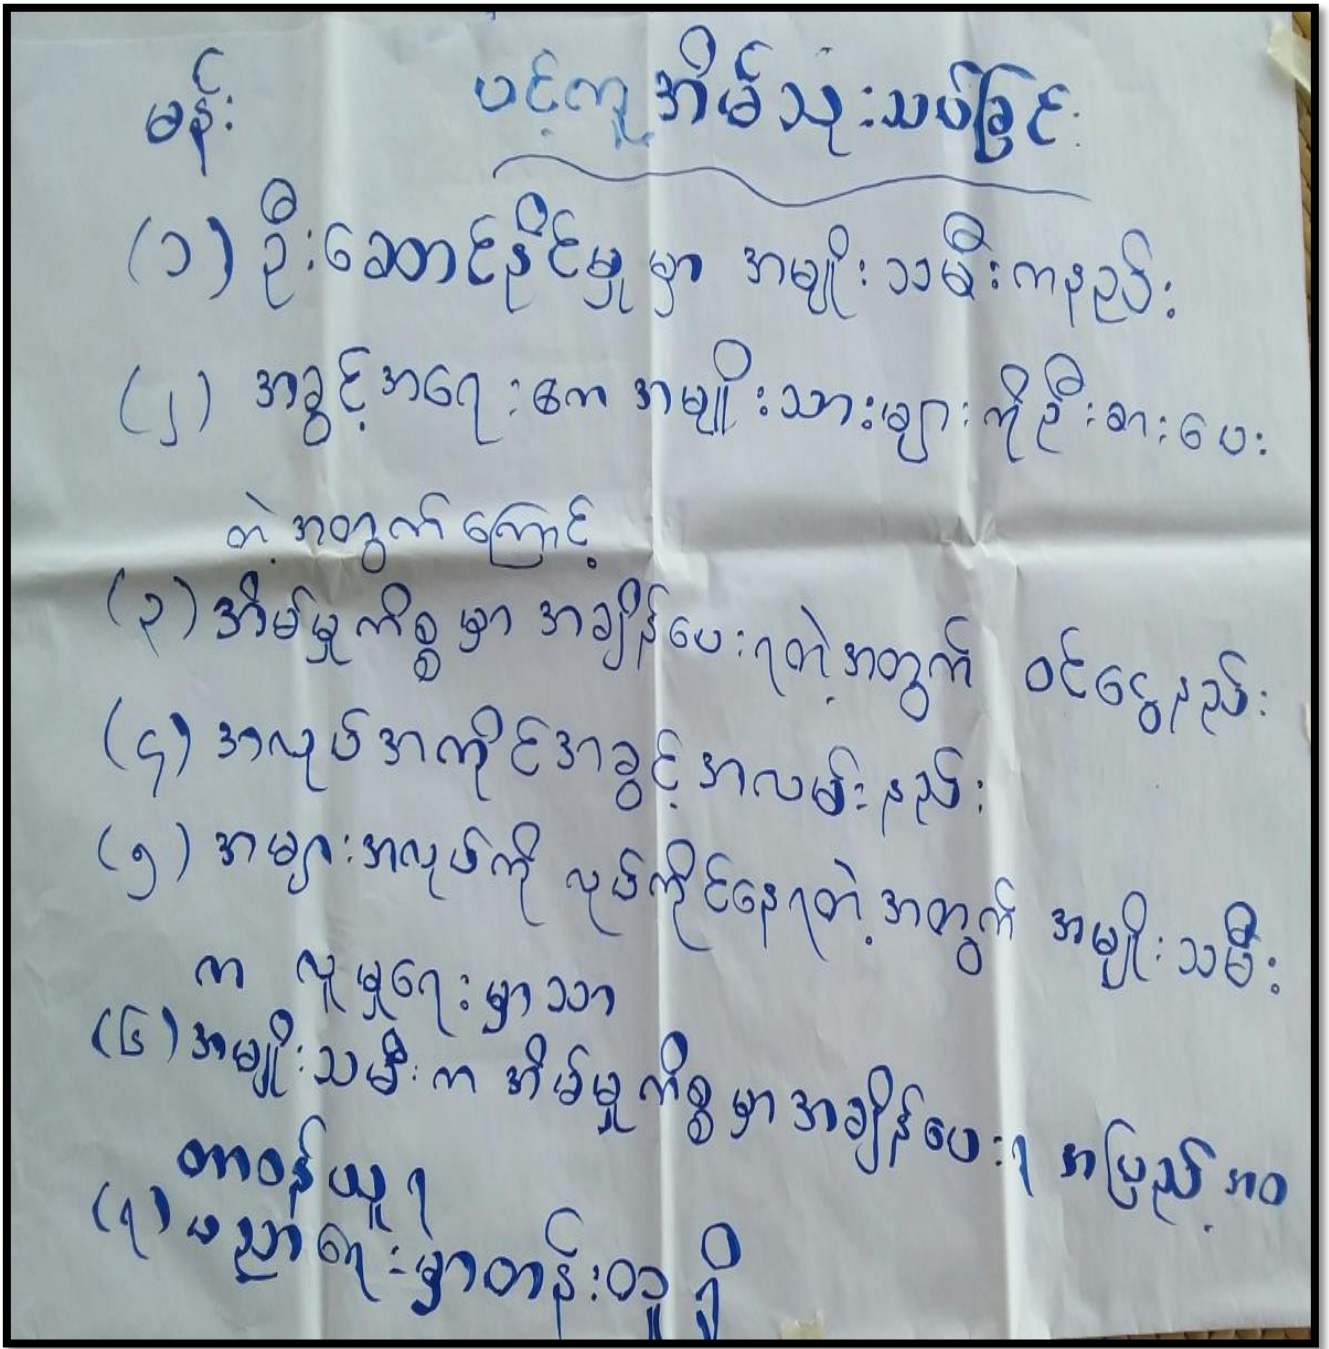 မန်း ပင့်ကူအိမ်သုံးသပ်ခြင်း
(၁) ဦးဆောင်နိုင်မှုမှာ အမျိုးသမီးကနည်း
(၂) အခွင့်အရေးက အမျိုးသားများကိုဦးစားပေး
တဲ့အတွက်ကြောင့်
(၃) အိမ်မှုကိစ္စမှာ အချိန်ပေးရတဲ့အတွက် ဝင်ငွေနည်း
(၄) အလုပ်အကိုင်အခွင့်အလမ်းနည်း
(၅) အများအလုပ်ကို လုပ်ကိုင်နေရတဲ့အတွက် အမျိုးသမီး
က လူမှုရေးမှာသာ
(၆) အမျိုးသမီးက အိမ်မှုကိစ္စမှာအချိန်ပေးရ အပြည့်အဝ
တာဝန်ယူရ
(၇) ပညာရေးမှာတန်းတူရှိ